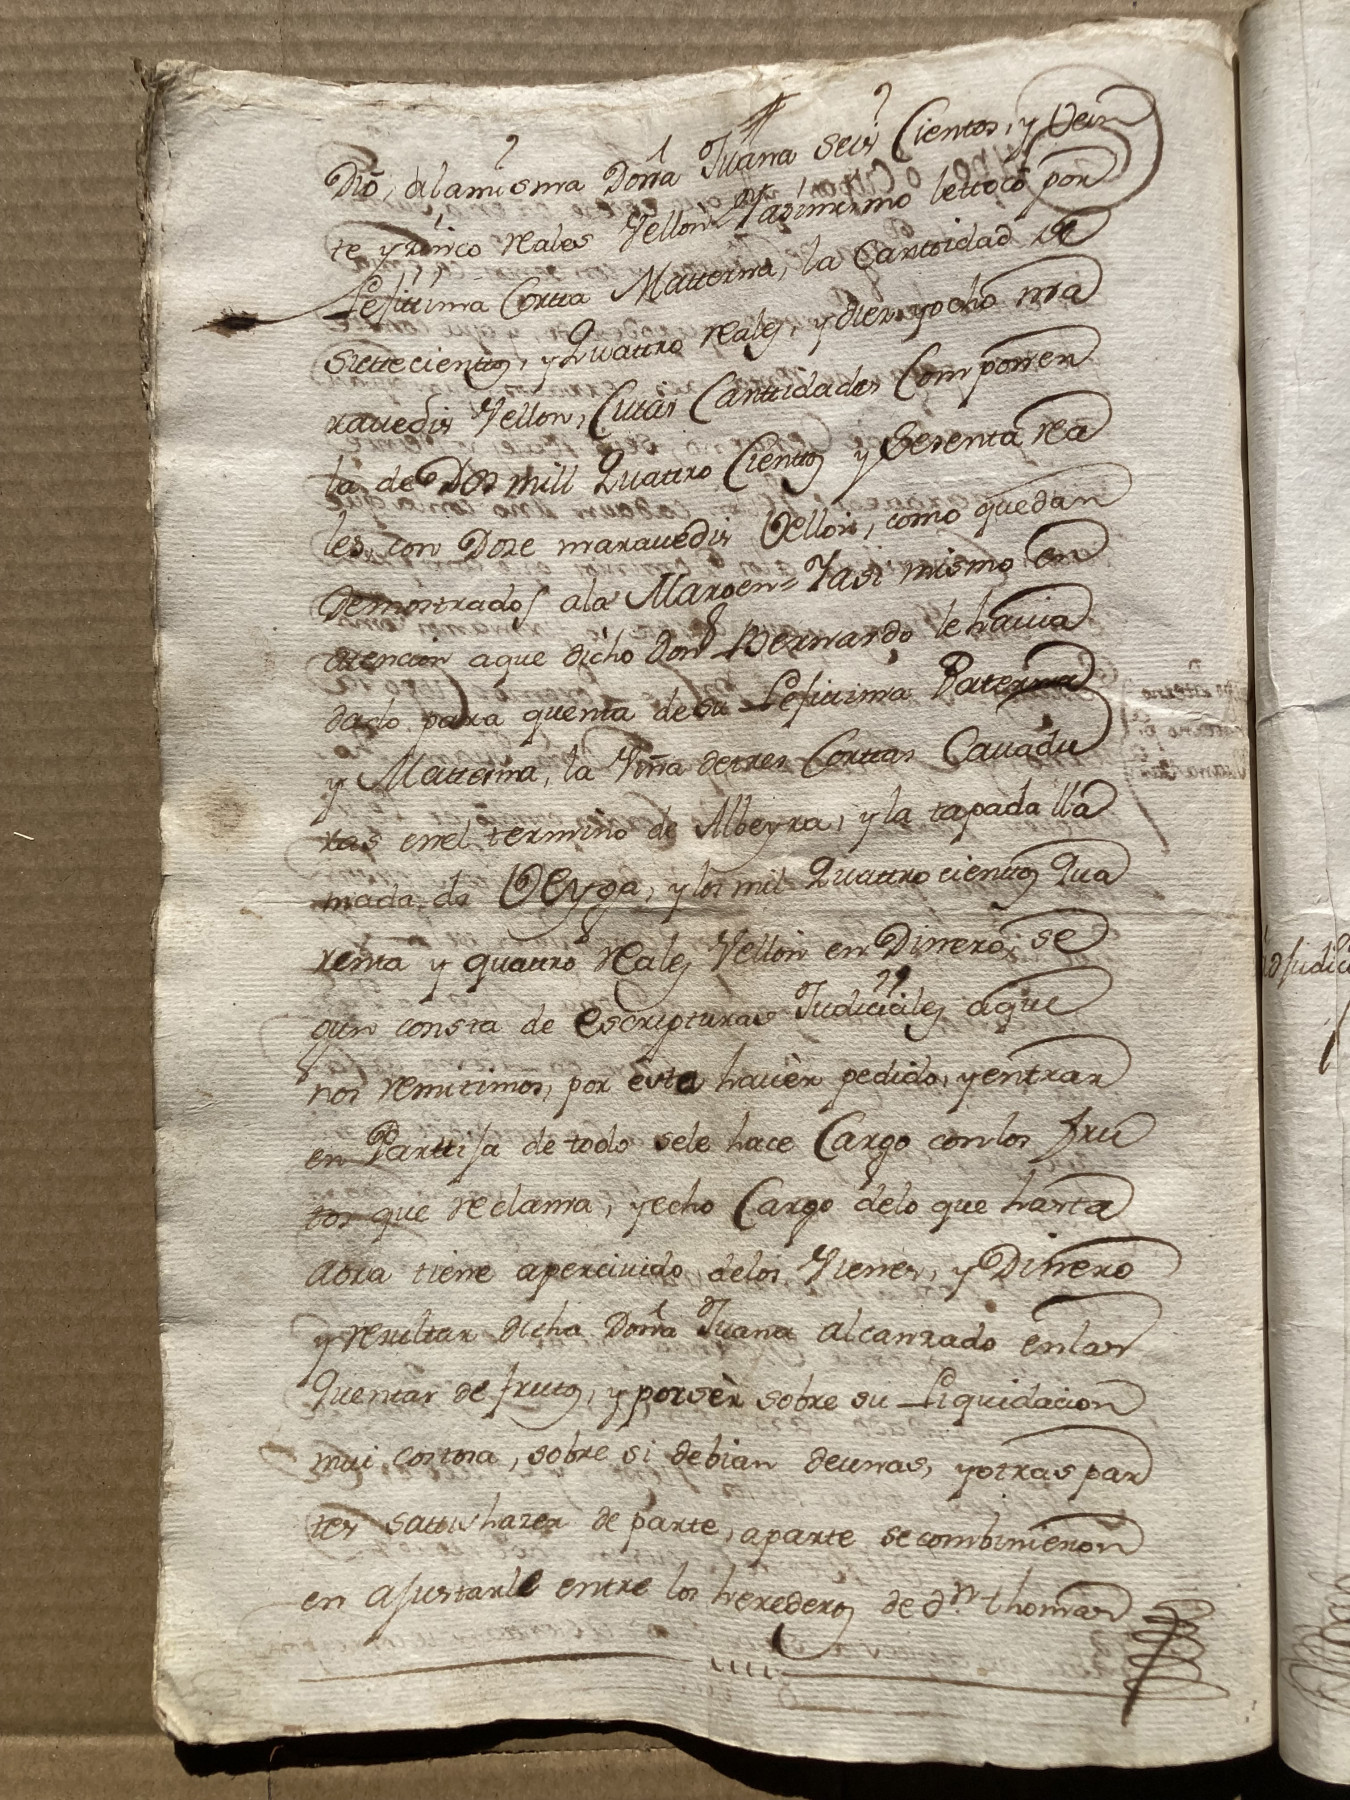 Dió, alamisma Doña Juana seis Cientos, y Vein
te y Zinco reales Vellon Yasimismo lettocó por
Lejitima Cortta Matterna, la Cantidad de
Settecientos, y Quattro reales, y diez yocho ma
rauedis Vellon, Cuias Canttidades Componen
la de Dos mill Quattro Cientos y Sesenta rea
les, con Doze marauedis Vellon, como quedan
Demostrados ala Margen= Yasi mismo en
atencion aque dicho Don Bernardo le hauia
dado para quenta desu Lejittima Paterna
y Matterna, la Viña detres Corttas Cauadu
ras enel termino de Albeyra, y la tapada lla
mada de Veyga, y los mil Quattrocientos Qua
renta y quattro reales Vellon en Dinero, se
gun consta de escripturas Judiciales aque
nos remitimos, por esta hauèr pedido, yentrar
en Parttija de todo sele hace Cargo conlos fru
tos que reclama, yecho Cargo delo que hasta
aora tiene apercivido, delos Vienes, y Dinero
y resultar dicha Doña Juana alcanzado enlas
Quentas de frutos, y porsèr sobre su Liquidacion
mui costosa, sobre si debian deunas, yotras par
tes sattishazer de parte, aparte secombinieron
en ajustarle entre los herederos de dn. thomas